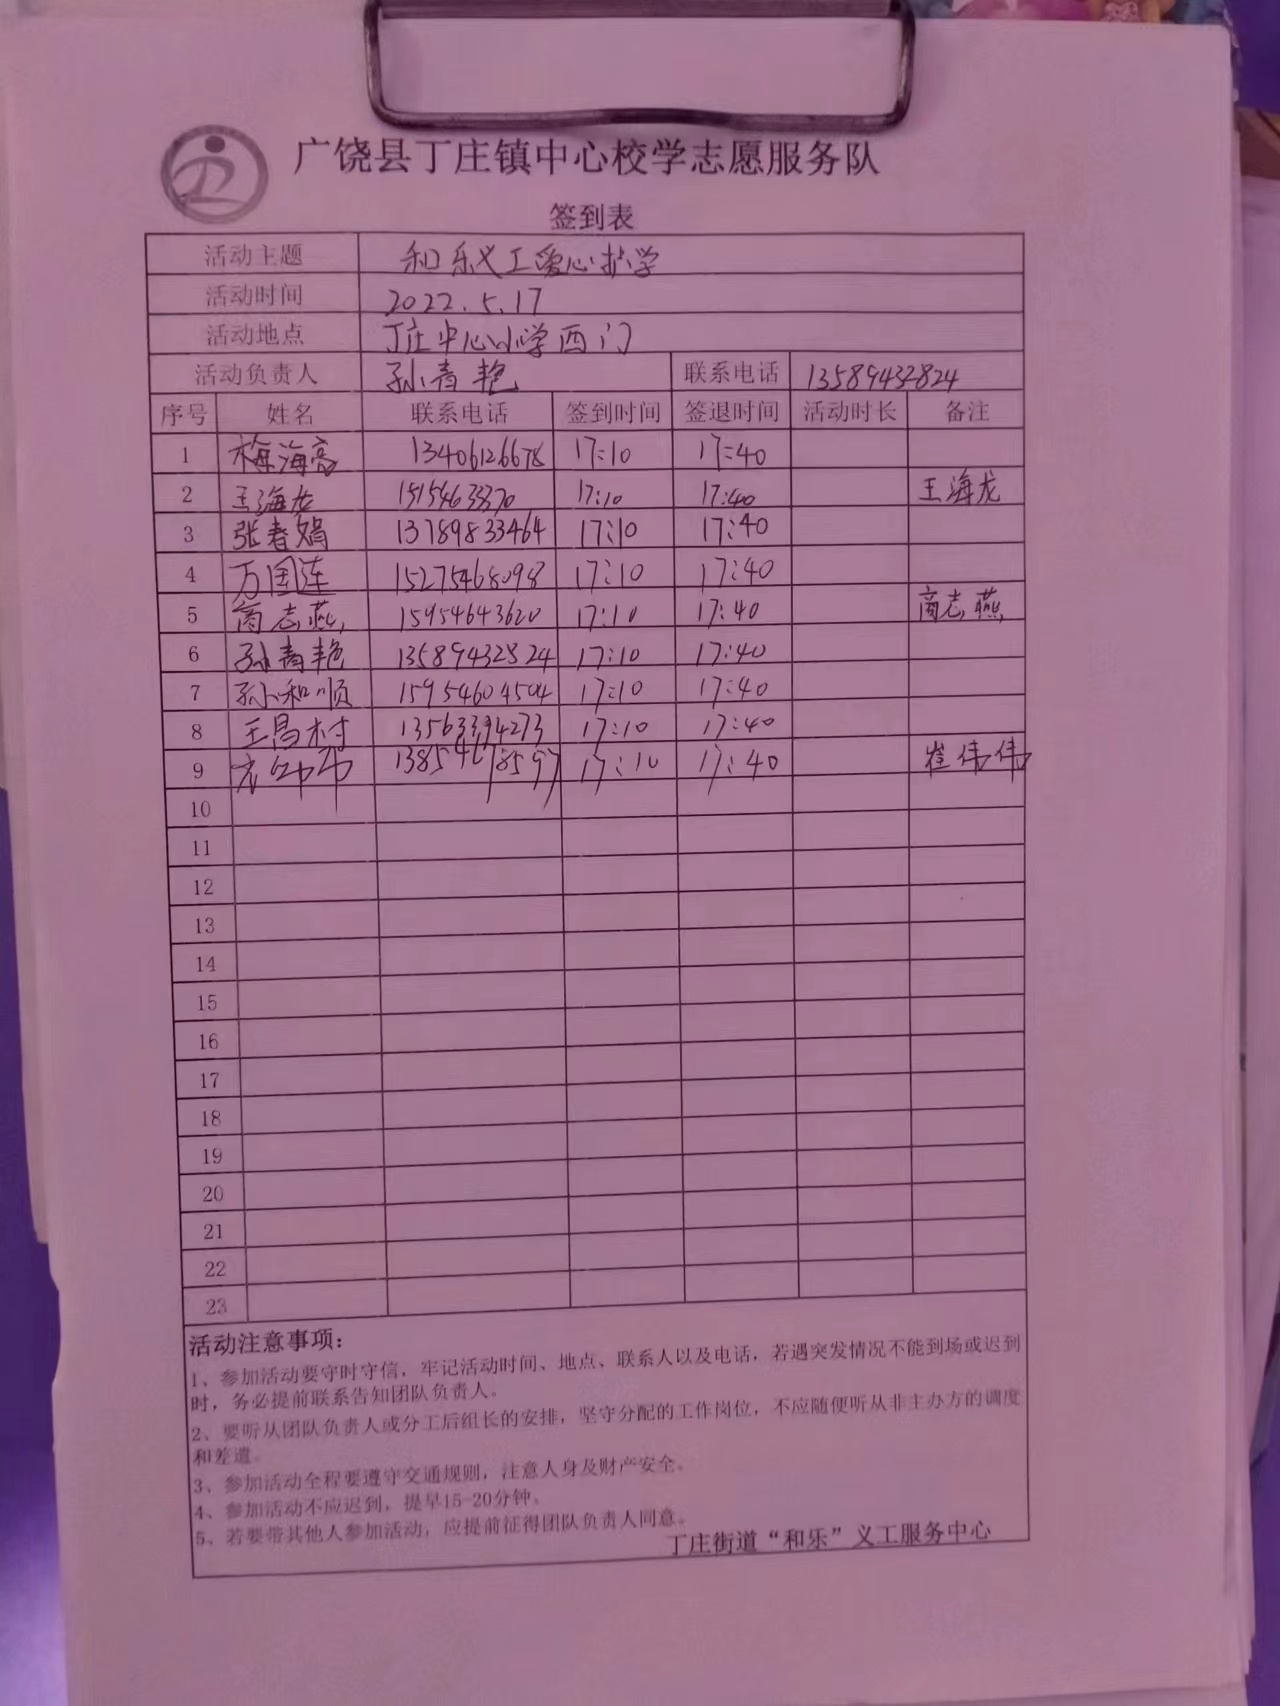 广饶县丁庄镇中心校学志愿服务队
签到表
活动主题 和乐义工爱心护学
活动时间 2022.5.17
活动地点 丁庄中心小学西门
活动负责人 孙青艳 联系电话 13589432824
序号 姓名 联系电话 签到时间 签退时间 活动时长 备注
1 梅海亮 13406126678 17:10 17:40
2 王海龙 17:10 17:40 王海龙
3 张春娟 13789833464 17:10 17:40
4 万国莲 15275468098 17:10 17:40
5 商志燕 15954643620 17:10 17:40 商志燕
6 孙青艳 13589432824 17:10 17:40
7 孙和顺 15954604504 17:10 17:40
8 王昌村 13563394273 17:10 17:40
9 17:10 17:40 崔伟伟
10
11
12
13
14
15
16
17
18
19
20
21
22
23
活动注意事项：
1、参加活动要守时守信，牢记活动时间、地点、联系人以及电话，若遇突发情况不能到场或迟到
时，务必提前联系告知团队负责人。
2、要听从团队负责人或分工后组长的安排，坚守分配的工作岗位，不应随便听从非主办方的调度
和差遣。
3、参加活动全程要遵守交通规则，注意人身及财产安全。
4、参加活动不应迟到，提早15-20分钟。
5、若要带其他人参加活动，应提前征得团队负责人同意。
丁庄街道“和乐”义工服务中心